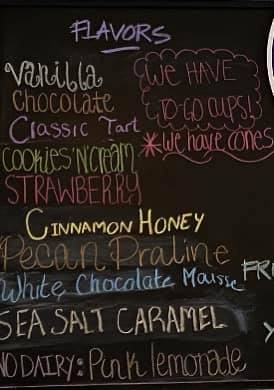 FLAVORS
Vanilla
Chocolate
Classic Tart
COOKIES'N'CREAM
STRAWBERRY
We HAVE
TO-GO CUPS!
*We have cones
CINNAMON HONEY
Pecan Praline
White Chocolate Mousse
SEA SALT CARAMEL
NO DAIRY: Pink lemonade